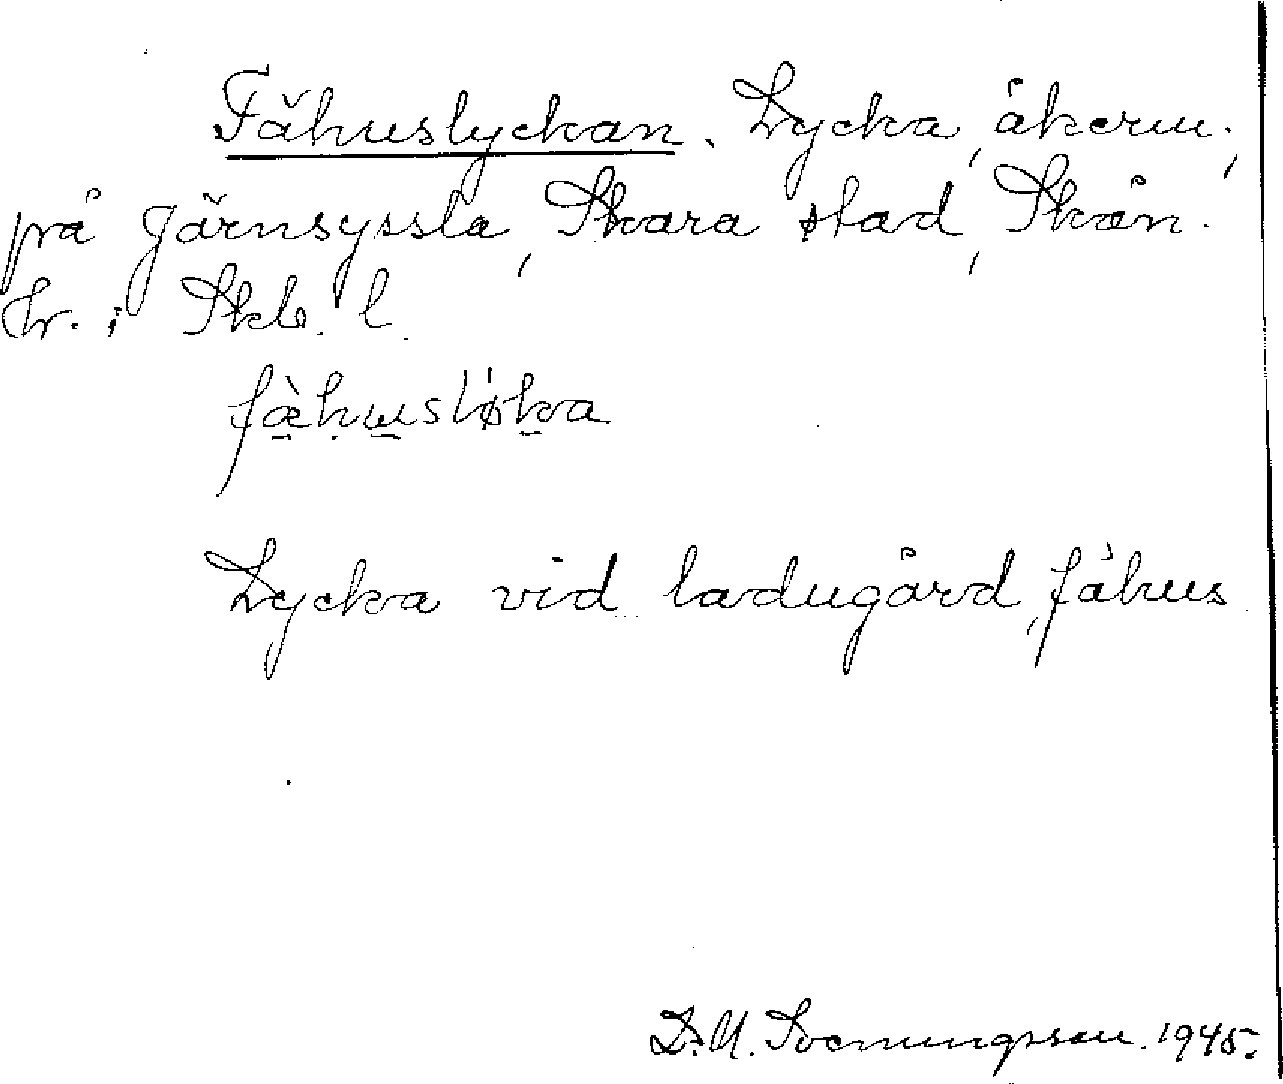 Fähuslyckan. Lycka, åkerm.,
på Järnsyssla, Skara stad, Skån.
hr. i Skb. l.
fæ̀husløka
Lycka vid ladugård, fähus
D. U. Svenungsson. 1945.